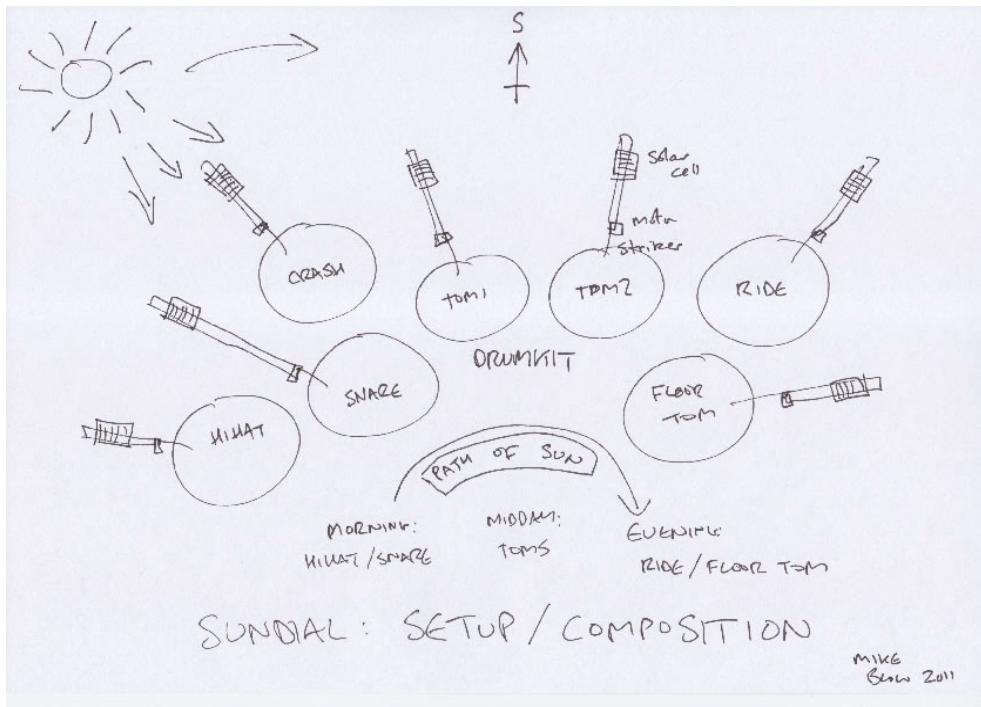 S
Solar
cell
motor
striker
CRASH
TOM1
TOM2
RIDE
DRUMKIT
SNARE
FLOOR
TOM
HIHAT
PATH OF SUN
MORNING:
HIHAT/SNARE
MIDDAY:
TOMS
EVENING:
RIDE/FLOOR TOM
SUNDIAL: SETUP/COMPOSITION
MIKE
Blow 2011